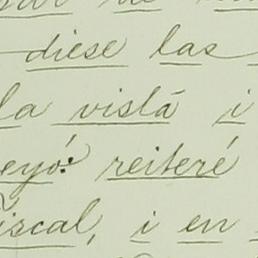 diese las
la vistá i
eyó: reiteré
iscal, i en